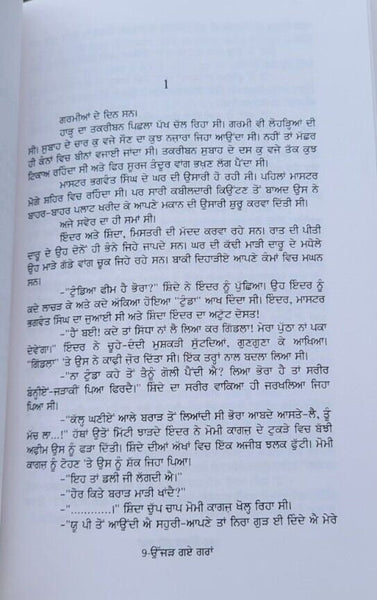 1
ਗਰਮੀਆਂ ਦੇ ਦਿਨ ਸਨ।
ਹਾੜ੍ਹ ਦਾ ਤਕਰੀਬਨ ਪਿਛਲਾ ਪੱਖ ਚੱਲ ਰਿਹਾ ਸੀ। ਗਰਮੀ ਵੀ ਲੋਹੜਿਆਂ ਦੀ
ਸੀ। ਸੁਬਾਹ ਦੇ ਚਾਰ ਕੁ ਵਜੇ ਸੌਣ ਦਾ ਕੁਝ ਨਜ਼ਾਰਾ ਜਿਹਾ ਆਉਂਦਾ ਸੀ। ਨਹੀਂ ਤਾਂ ਮੱਛਰ
ਹੀ ਕੰਨਾਂ ਵਿਚ ਬੀਨਾਂ ਵਜਾਈ ਜਾਂਦਾ ਸੀ। ਤਕਰੀਬਨ ਸੁਬਾਹ ਦੇ ਦਸ ਕੁ ਵਜੇ ਤੱਕ ਕੁਝ
ਟਿਕਾਅ ਰਹਿੰਦਾ ਸੀ ਅਤੇ ਫਿਰ ਸੂਰਜ ਤੰਦੂਰ ਵਾਂਗ ਭਖਣ ਲੱਗ ਪੈਂਦਾ ਸੀ।
ਮਾਸਟਰ ਭਗਵੰਤ ਸਿੰਘ ਦੇ ਘਰ ਦੀ ਉਸਾਰੀ ਹੋ ਰਹੀ ਸੀ। ਪਹਿਲਾਂ ਮਾਸਟਰ
ਮੋਗੇ ਸ਼ਹਿਰ ਵਿਚ ਰਹਿੰਦਾ ਸੀ। ਪਰ ਸਾਰੀ ਕਬੀਲਦਾਰੀ ਕਿਉਂਟਣ ਤੋਂ ਬਾਅਦ ਉਸ ਨੇ
ਬਾਹਰ-ਬਾਹਰ ਪਲਾਟ ਖਰੀਦ ਕੇ ਆਪਣੇ ਮਕਾਨ ਦੀ ਉਸਾਰੀ ਸ਼ੁਰੂ ਕਰਵਾ ਦਿੱਤੀ ਸੀ।
ਅਜੇ ਸਵੇਰ ਦਾ ਹੀ ਸਮਾਂ ਸੀ।
ਇੰਦਰ ਅਤੇ ਸ਼ਿੰਦਾ, ਮਿਸਤਰੀ ਦੀ ਮੱਦਦ ਕਰਵਾ ਰਹੇ ਸਨ। ਰਾਤ ਦੀ ਪੀਤੀ
ਦਾਰੂ ਦੇ ਉਹ ਦੋਨੋਂ ਹੀ ਭੰਨੇ ਜਿਹੇ ਜਾਪਦੇ ਸਨ। ਘਰ ਦੀ ਕੱਢੀ ਮਾੜੀ ਦਾਰੂ ਦੇ ਮਧੋਲੇ
ਉਹ ਮਾੜੇ ਗੱਡੇ ਵਾਂਗ ਚੂਕ ਜਿਹੇ ਰਹੇ ਸਨ। ਬਾਕੀ ਦਿਹਾੜੀਏ ਆਪਣੇ ਕੰਮਾਂ ਵਿਚ ਮਘਨ
ਸਨ।
-"ਟੁੰਡਿਆ ਫੀਮ ਹੈ ਭੋਰਾ?" ਸ਼ਿੰਦੇ ਨੇ ਇੰਦਰ ਨੂੰ ਪੁੱਛਿਆ। ਉਹ ਇੰਦਰ ਨੂੰ
ਕਦੇ ਲਾਚੜ ਕੇ ਅਤੇ ਕਦੇ ਅੱਕਿਆ ਹੋਇਆ "ਟੁੰਡਾ" ਆਖ ਦਿੰਦਾ ਸੀ। ਇੰਦਰ, ਮਾਸਟਰ
ਭਗਵੰਤ ਸਿੰਘ ਦਾ ਜੁਆਈ ਸੀ ਅਤੇ ਸ਼ਿੰਦਾ ਇੰਦਰ ਦਾ ਅਟੁੱਟ ਦੋਸਤ!
-"ਹੈ ਬਈ! ਕਦੇ ਤਾਂ ਸਿੱਧਾ ਨਾਂ ਲੈ ਲਿਆ ਕਰ ਗਿੱਡਲਾ! ਮੇਰਾ ਪੁੱਠਾ ਨਾਂ ਪਕਾ
ਦੇਵੇਂਗਾ।" ਇੰਦਰ ਨੇ ਚੂਹੇ-ਦੰਦੀ ਮੁਸ਼ਕੜੀ ਸੁੱਟਦਿਆਂ, ਗੁਣਗੁਣਾ ਕੇ ਆਖਿਆ।
"ਗਿੱਡਲਾ" 'ਤੇ ਉਸ ਨੇ ਕਾਫ਼ੀ ਜ਼ੋਰ ਦਿੱਤਾ ਸੀ। ਇਕ ਤਰ੍ਹਾਂ ਨਾਲ ਬਦਲਾ ਲਿਆ ਸੀ।
-"ਨਾ ਟੁੰਡਾ ਕਹੇ ਤੋਂ ਤੈਨੂੰ ਗੋਲੀ ਪੈਂਦੀ ਐ? ਲਿਆ ਭੋਰਾ ਹੈ ਤਾਂ ਸਰੀਰ
ਬੰਨ੍ਹੀਏ-ਜੜਾਕੀਂ ਪਿਆ ਫਿਰਦੈ।" ਸ਼ਿੰਦੇ ਦਾ ਸਰੀਰ ਵਾਕਿਆ ਹੀ ਜਰਖਲਿਆ ਜਿਹਾ
ਪਿਆ ਸੀ।
-"ਕੱਲ੍ਹ ਘਣੀਏਂ ਆਲੇ ਬਰਾੜ ਤੋਂ ਲਿਆਂਦੀ ਸੀ ਭੋਰਾ ਆਬਦੇ ਆਸਤੇ-ਲੈ, ਤੂੰ
ਮੱਚ ਲਾ...!" ਹੱਥਾਂ ਉਤੋਂ ਮਿੱਟੀ ਝਾੜਦੇ ਇੰਦਰ ਨੇ ਮੋਮੀ ਕਾਗਜ਼ ਦੇ ਟੁਕੜੇ ਵਿਚ ਬੱਝੀ
ਅਫੀਮ ਉਸ ਨੂੰ ਫੜਾ ਦਿੱਤੀ। ਸ਼ਿੰਦੇ ਦੀਆਂ ਅੱਖਾਂ ਵਿਚ ਇਕ ਅਜੀਬ ਝਲਕ ਫੁੱਟੀ। ਮੋਮੀ
ਕਾਗਜ਼ ਨੂੰ ਟੋਹਣ 'ਤੇ ਉਸ ਨੂੰ ਸ਼ੱਕ ਜਿਹਾ ਪਿਆ।
-"ਇਹ ਤਾਂ ਡਲੀ ਜੀ ਲੱਗਦੀ ਐ।"
-"ਹੋਰ ਕਿਤੇ ਬਰਾੜ ਮਾੜੀ ਖਾਂਦੈ?"
-"............।" ਸ਼ਿੰਦਾ ਚੁੱਪ ਚਾਪ ਮੋਮੀ ਕਾਗਜ਼ ਖੋਲ੍ਹ ਰਿਹਾ ਸੀ।
-"ਯੂ ਪੀ ਤੋਂ ਆਉਂਦੀ ਐ ਸਹੁਰੀ-ਆਪਣੇ ਤਾਂ ਨਿਰਾ ਗੁੜ ਈ ਦਿੰਦੇ ਐ ਮੇਰੇ
9-ਉੱਜੜ ਗਏ ਗਰਾਂ